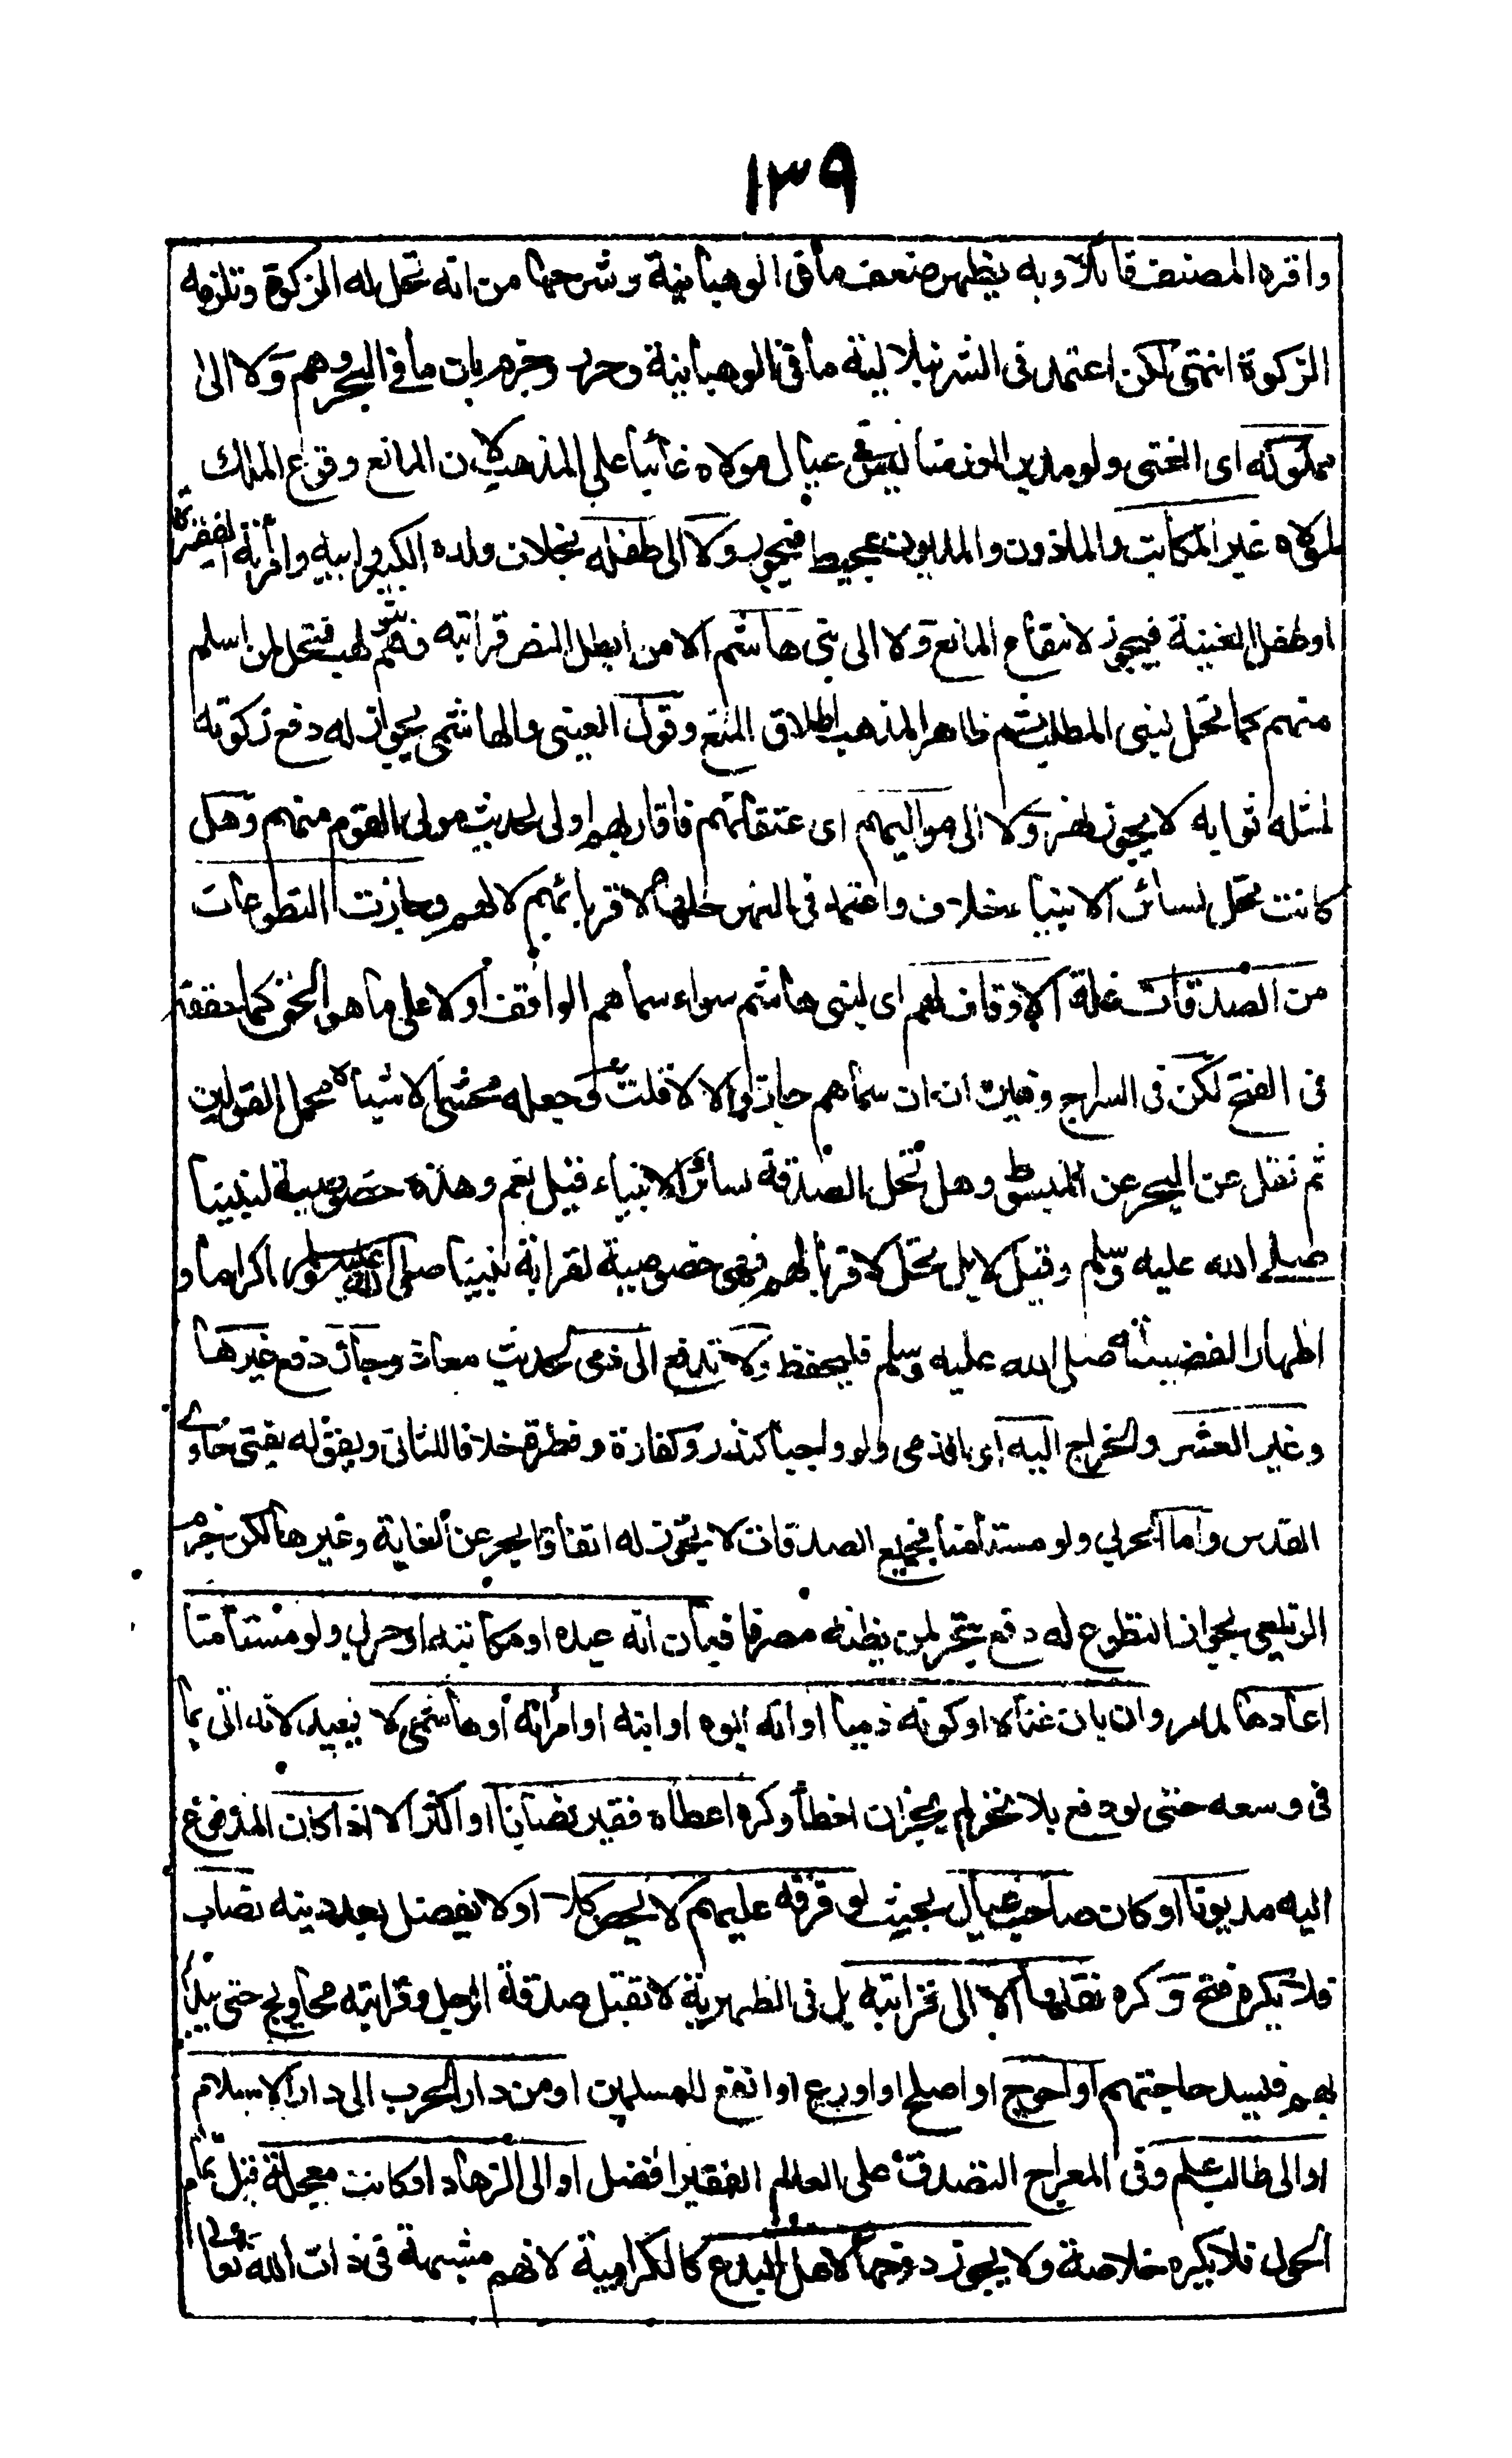 ١٣٩
واقره المصنف قائلا وبه يظهر ضعف ما فى الوهبانية وشرحها من انه تحل له الزكوة وتلزمه
الزكوة انتهى لكن اعتمد فى الشرنبلالية ما فى الوهبانية وحرر وجزم بان ما فى البحر وهم ولا الى
مملوكه اى الغنى ولو مدبرا او زمنا ليس فى عيال مولاه او كان مولاه غائبا على المذهب لان المانع وقوع الملك
لمولاه غير المكاتب والماذون والمديون بمحيط فيجوز ولا الى طفله بخلاف ولده الكبير وابيه وامرأته الفقراء
او طفل الغنية فيجوز لانتفاء المانع ولا الى بنى هاشم الا من ابطل النص قرابته وهم بنو لهب فتحل لمن اسلم
منهم كما تحل لبنى المطلب ثم ظاهر المذهب اطلاق المنع وقول العينى والهاشمى يجوز له دفع زكوته
لمثله ثوابه لا يجوز نهر ولا الى مواليهم اى عتقائهم فارقاؤهم اولى لحديث مولى القوم منهم وهل
كانت تحل لسائر الانبياء خلاف واعتمد فى النهر حلها لاقربائهم لا لهم وجازت التطوعات
من الصدقات وغلة الاوقاف لهم اى لبنى هاشم سواء سماهم الواقف او لا على ما هو الحق كما حققه
فى الفتح لكن فى السراج وغيره انه ان سماهم جاز والا لا قلت وجعله محشى الاشباه محمل القولين
ثم نقل عن البحر عن المبسوط وهل تحل الصدقة لسائر الانبياء قيل نعم وهذه خصوصية لنبينا
صلى الله عليه وسلم وقيل لا بل تحل لاقربائهم فهى خصوصية لقرابة نبينا صلى الله عليه وسلم اكراما و
اظهارا لفضيلته صلى الله عليه وسلم فليحفظ ولا تدفع الى ذمى لحديث معاذ وجاز دفع غيرها
وغير العشر والخراج اليه اى الذمى ولو واجبا كنذر وكفارة وفطرة خلافا للثانى وبقوله يفتى حاوى
القدسى واما الحربى ولو مستأمنا فجميع الصدقات لا يجوز له اتفاقا بحر عن الغاية وغيرها لكن جزم
الزيلعى بجواز التطوع له دفع بتحر لمن يظنه مصرفا فبان انه عبده او مكاتبه او حربى ولو مستأمنا
اعادها لما مر وان بان غناه او كونه ذميا او انه ابوه او ابنه او امرأته او هاشمى لا يعيد لانه اتى بما
فى وسعه حتى لو دفع بلا تحر لم يجز ان اخطأ وكره اعطاء فقير نصابا او اكثر الا اذا كان المدفوع
اليه مديونا او كان صاحب عيال بحيث لو فرقه عليهم لا يخص كلا او لا يفضل بعد دينه نصاب
فلا يكره فتح وكره نقلها الا الى قرابته بل فى الظهيرية لا تقبل صدقة الرجل وقرابته محاويج حتى يبدأ
بهم فيسد حاجتهم او احوج او اصلح او اورع او انفع للمسلمين او من دار الحرب الى دار الاسلام
او الى طالب علم وفى المعراج التصدق على العالم الفقير افضل او الى الزهاد او كانت معجلة قبل تمام
الحول فلا يكره خلاصة ولا يجوز دفعها لاهل البدع كالكرامية لانهم مشبهة فى ذات الله تعالى